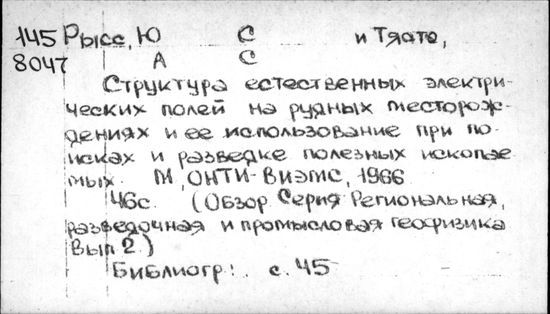 145 Рысс, Ю С и Тяоте,
8047 А С
Структура естественных электри-
ческих полей на рудных месторож-
дениях и ее использование при по-
исках и разведке полезных ископае
мых. М, ОНТИ-ВИЭМС, 1966
46с. (Обзор Серия Региональная,
разведочная и промысловая геофизика
Вып 2)
Библиогр: с. 45